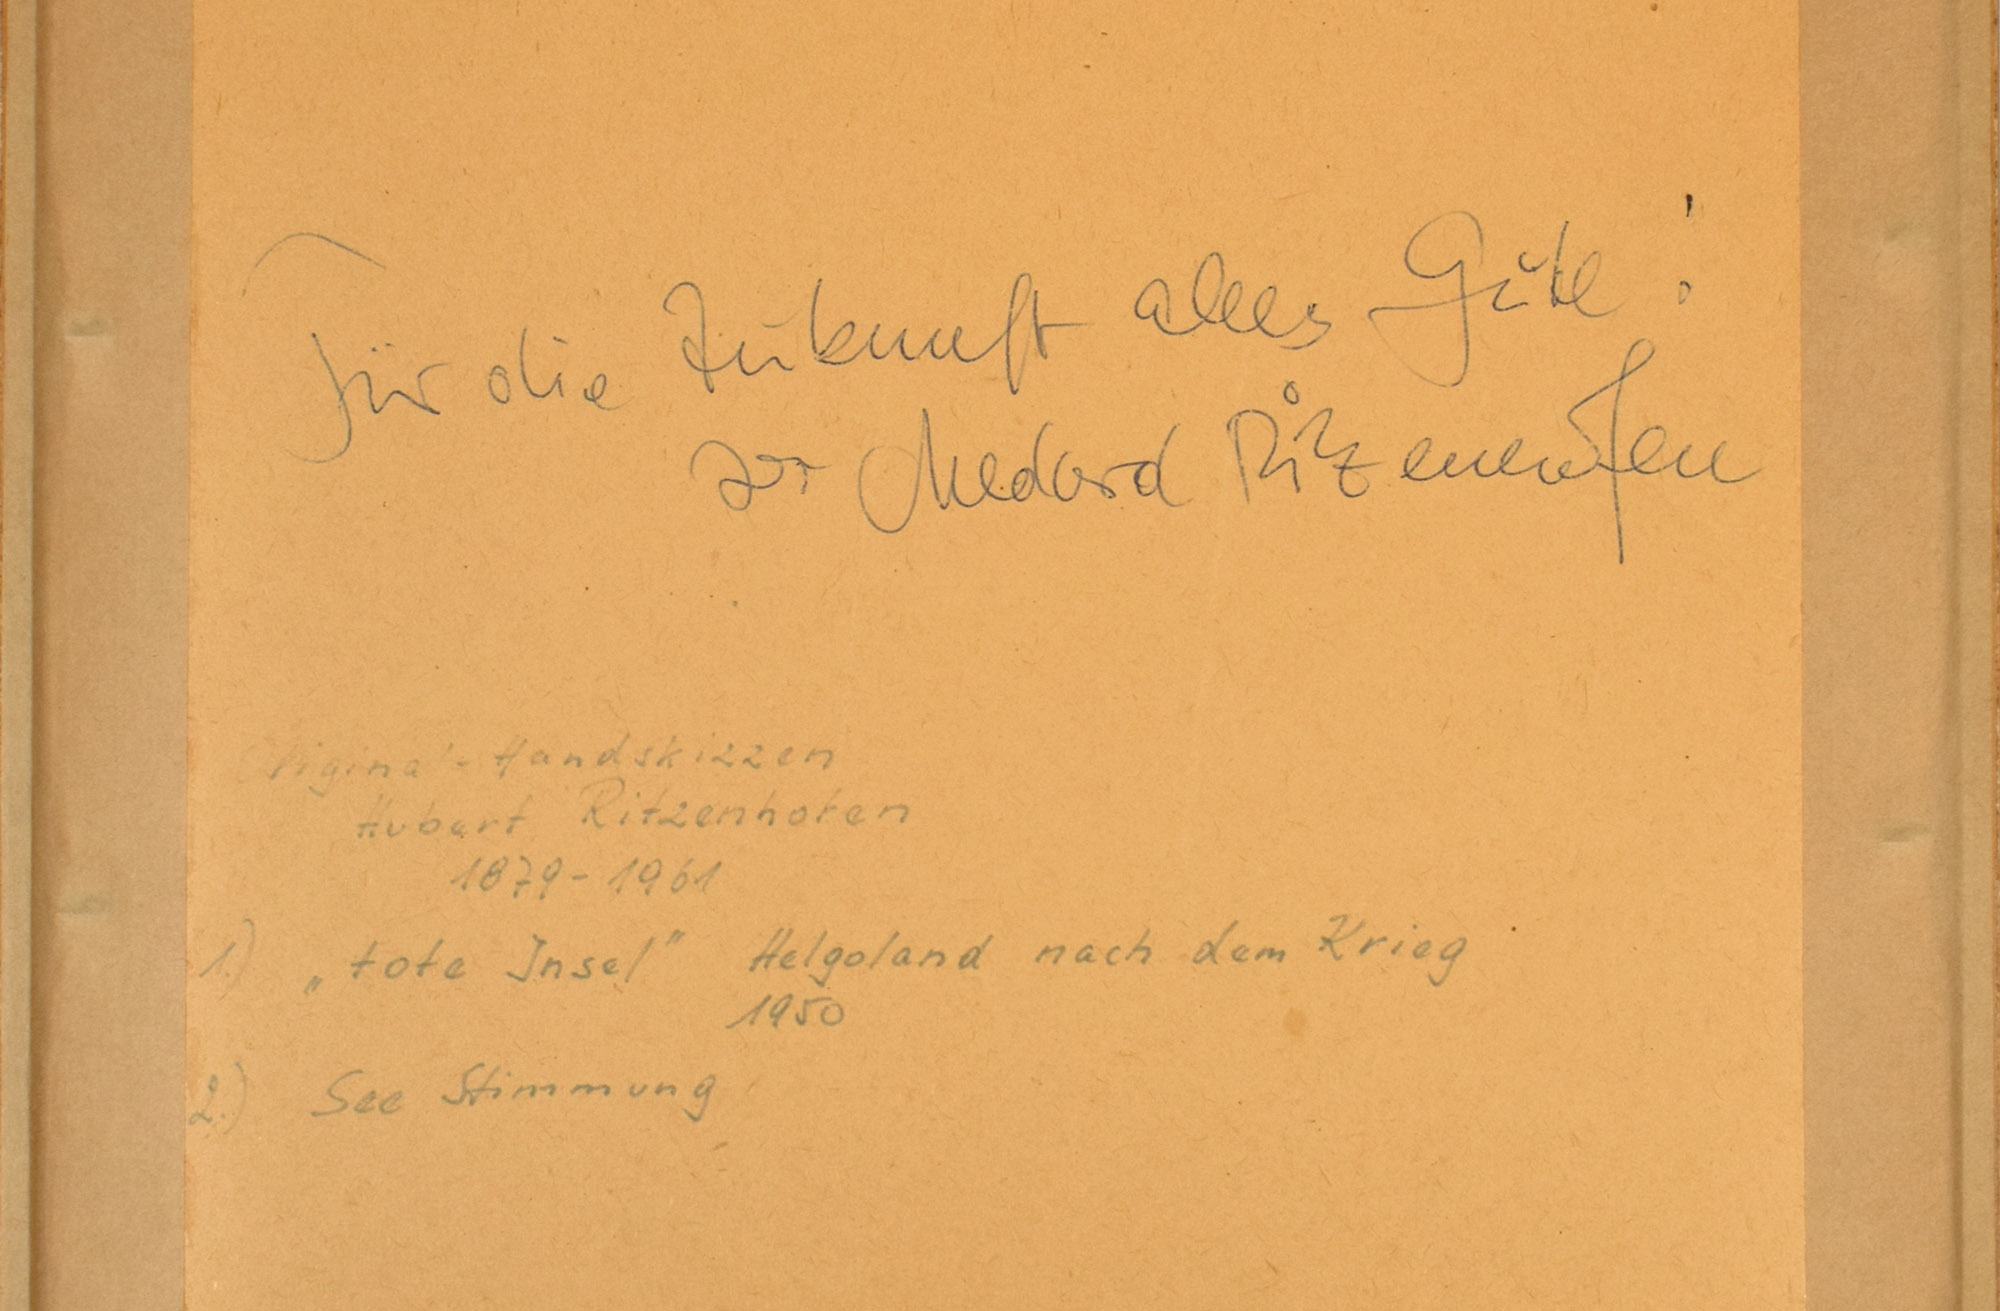 Für die Zukunft alles Gute!
Medard Ritzenhofen
Original-Handskizzen
Hubert Ritzenhofen
1879-1961
1.) „tote Insel" Helgoland nach dem Krieg
1950
2.) See Stimmung